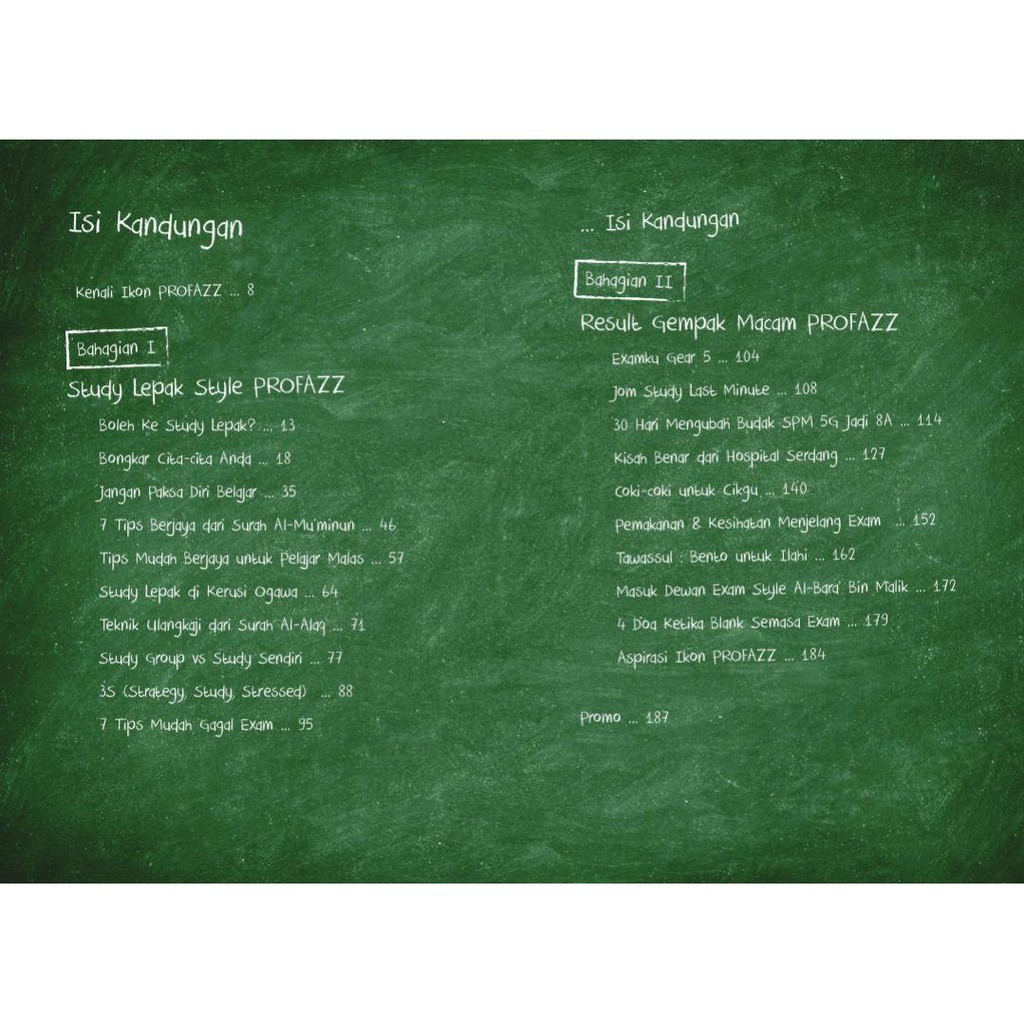 Isi Kandungan
Kenali Ikon PROFAZZ ... 8
Bahagian I
Study Lepak Style PROFAZZ
Boleh Ke Study Lepak? ... 13
Bongkar Cita-cita Anda ... 18
Jangan Paksa Diri Belajar ... 35
7 Tips Berjaya dari Surah Al-Mu'minun ... 46
Tips Mudah Berjaya untuk Pelajar Malas ... 57
Study Lepak di Kerusi Ogawa ... 64
Teknik Ulangkaji dari Surah Al-Alaq ... 71
Study Group vs Study Sendiri ... 77
3S (Strategy, Study, Stressed) ... 88
7 Tips Mudah Gagal Exam ... 95
... Isi Kandungan
Bahagian II
Result Gempak Macam PROFAZZ
Examku Gear 5 ... 104
Jom Study Last Minute ... 108
30 Hari Mengubah Budak SPM 5G Jadi 8A ... 114
Kisah Benar dari Hospital Serdang ... 127
Coki-coki untuk Cikgu ... 140
Pemakanan & Kesihatan Menjelang Exam ... 152
Tawassul : Bento untuk Ilahi ... 162
Masuk Dewan Exam Style Al-Bara' Bin Malik ... 172
4 Doa Ketika Blank Semasa Exam ... 179
Aspirasi Ikon PROFAZZ ... 184
Promo ... 187